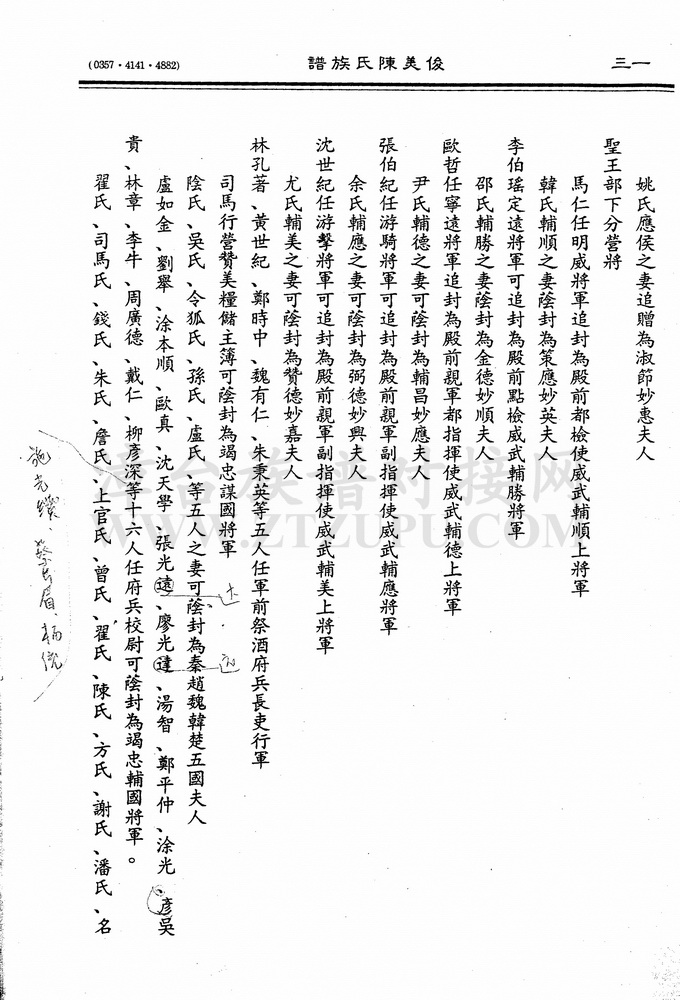 一三
俊美陳氏族譜
(0357·4141·4882)
姚氏應侯之妻追贈為淑節妙惠夫人
聖王部下分營將
馬仁任明威將軍追封為殿前都檢使威武輔順上將軍
韓氏輔順之妻蔭封為策應妙英夫人
李伯瑤定遠將軍可追封為殿前點檢威武輔勝將軍
邵氏輔勝之妻蔭封為金德妙順夫人
歐哲任寧遠將軍追封為殿前親軍都指揮使威武輔德上將軍
尹氏輔德之妻可蔭封為輔昌妙應夫人
張伯紀任游騎將軍可追封為殿前親軍副指揮使威武輔應將軍
余氏輔應之妻可蔭封為弼德妙興夫人
沈世紀任游擊將軍可追封為殿前親軍副指揮使威武輔美上將軍
尤氏輔美之妻可蔭封為贊德妙嘉夫人
林孔著、黃世紀、鄭時中、魏有仁、朱秉英等五人任軍前祭酒府兵長吏行軍
司馬行營贊美糧儲主簿可蔭封為竭忠謀國將軍
陰氏、吳氏、令狐氏、孫氏、盧氏、等五人之妻可蔭封為秦趙魏韓楚五國夫人
盧如金、劉舉、涂本順、歐真、沈天學、張光遠、廖光達、湯智、鄭平仲、涂光、彥吳
貴、林章、李牛、周廣德、戴仁、柳彥深等十六人任府兵校尉可蔭封為竭忠輔國將軍。
翟氏、司馬氏、錢氏、朱氏、詹氏、上官氏、曾氏、翟氏、陳氏、方氏、謝氏、潘氏、名
达·远
漳台族譜对接网
WWW.ZTZUPU.COM